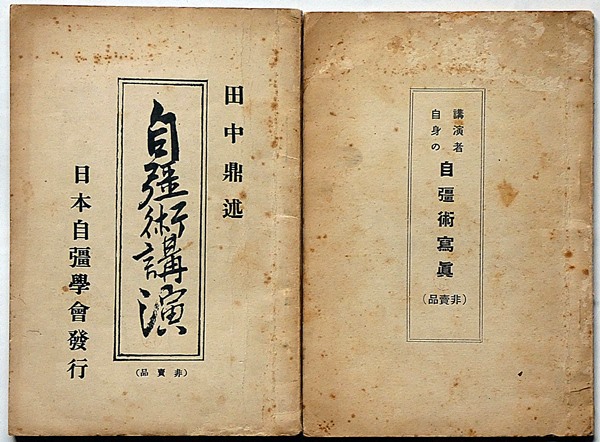 田中鼎述
自彊術講演
日本自彊學會發行
(非賣品)
講演者
自身の
自彊術寫眞
(非賣品)